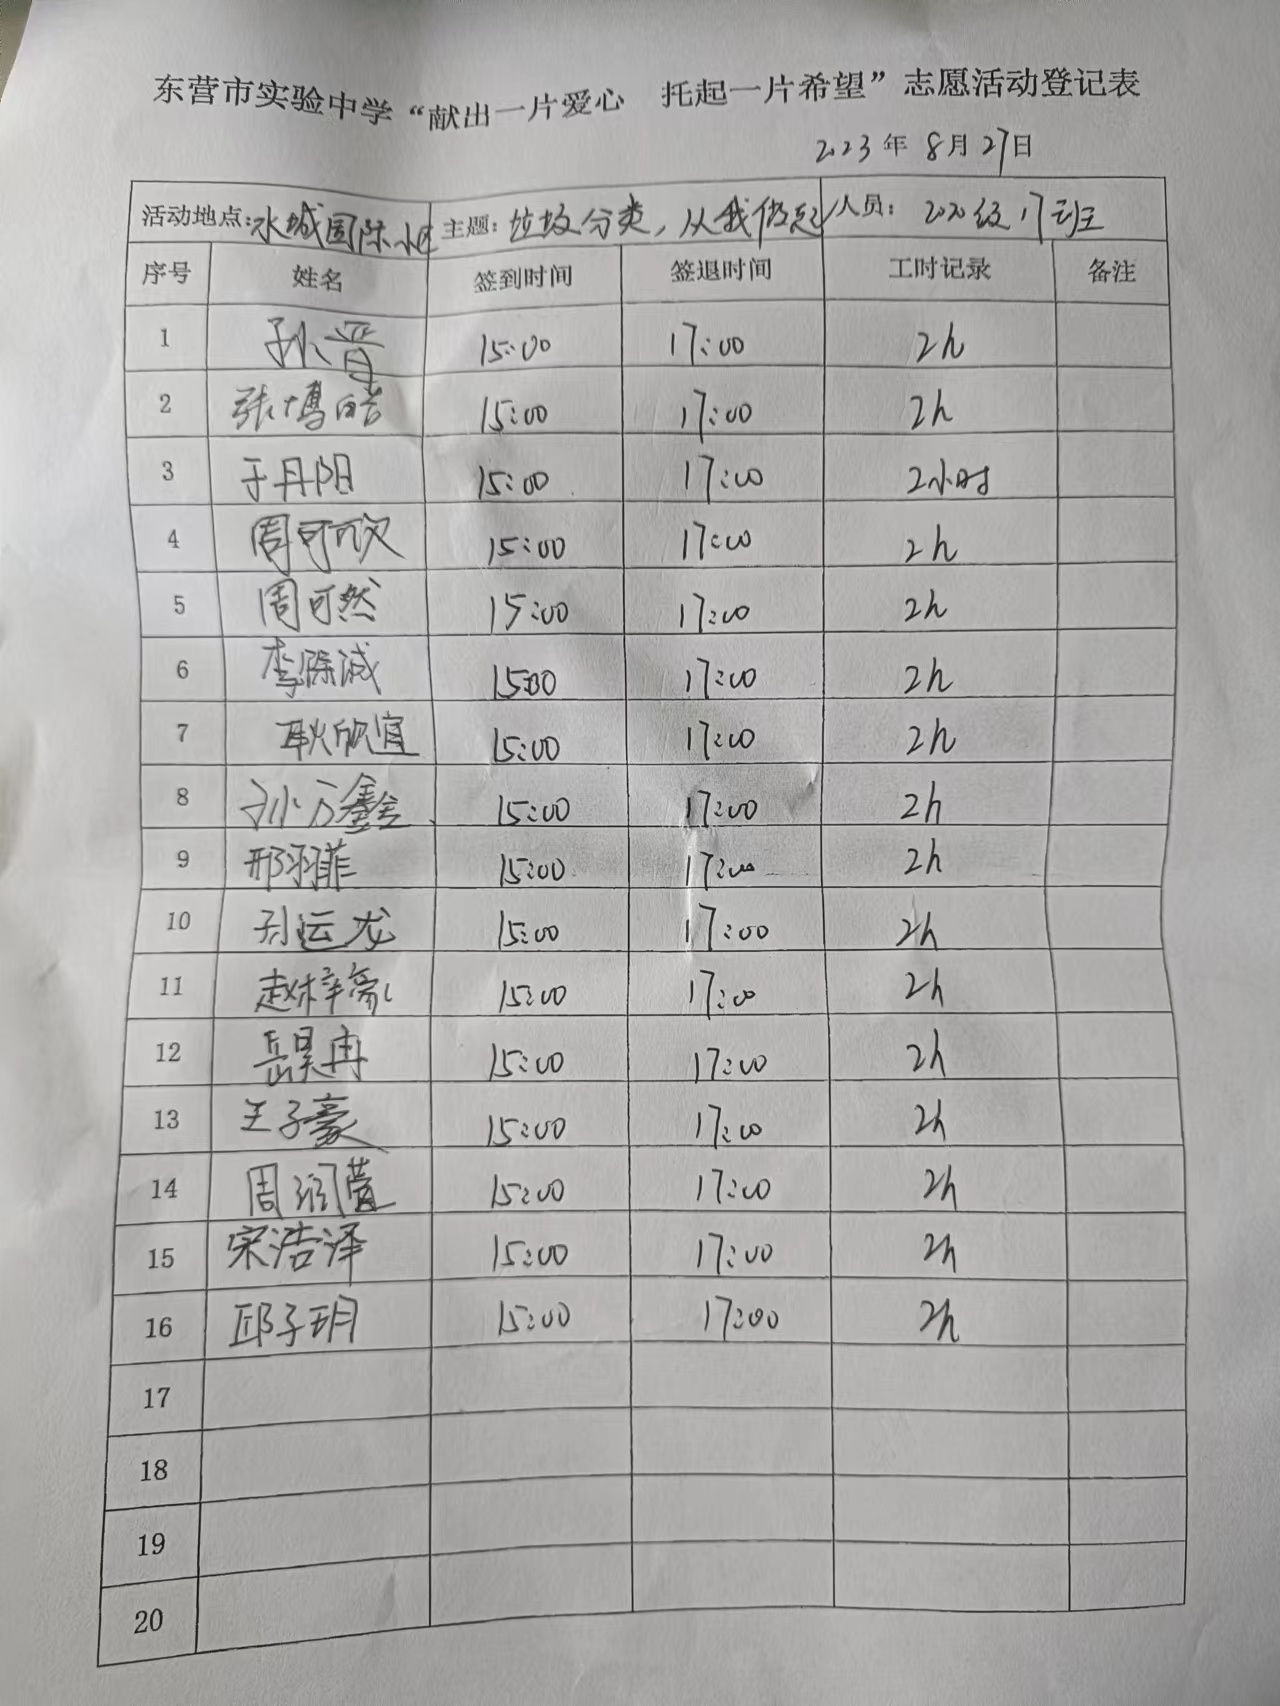 东营市实验中学“献出一片爱心 托起一片希望”志愿活动登记表
2023年 8月27日
活动地点:水城国际小区 主题:垃圾分类,从我做起 人员: 2020级17班
序号 姓名 签到时间 签退时间 工时记录 备注
1 孙晋 15:00 17:00 2h
2 张博皓 15:00 17:00 2h
3 于丹阳 15:00 17:00 2小时
4 周可欣 15:00 17:00 2h
5 周可然 15:00 17:00 2h
6 李际诚 15:00 17:00 2h
7 耿欣宜 15:00 17:00 2h
8 孙万鑫 15:00 17:00 2h
9 邢羽菲 15:00 17:00 2h
10 孙运龙 15:00 17:00 2h
11 赵梓豪 15:00 17:00 2h
12 岳昊冉 15:00 17:00 2h
13 王子豪 15:00 17:00 2h
14 周润萱 15:00 17:00 2h
15 宋浩泽 15:00 17:00 2h
16 邱子玥 15:00 17:00 2h
17
18
19
20